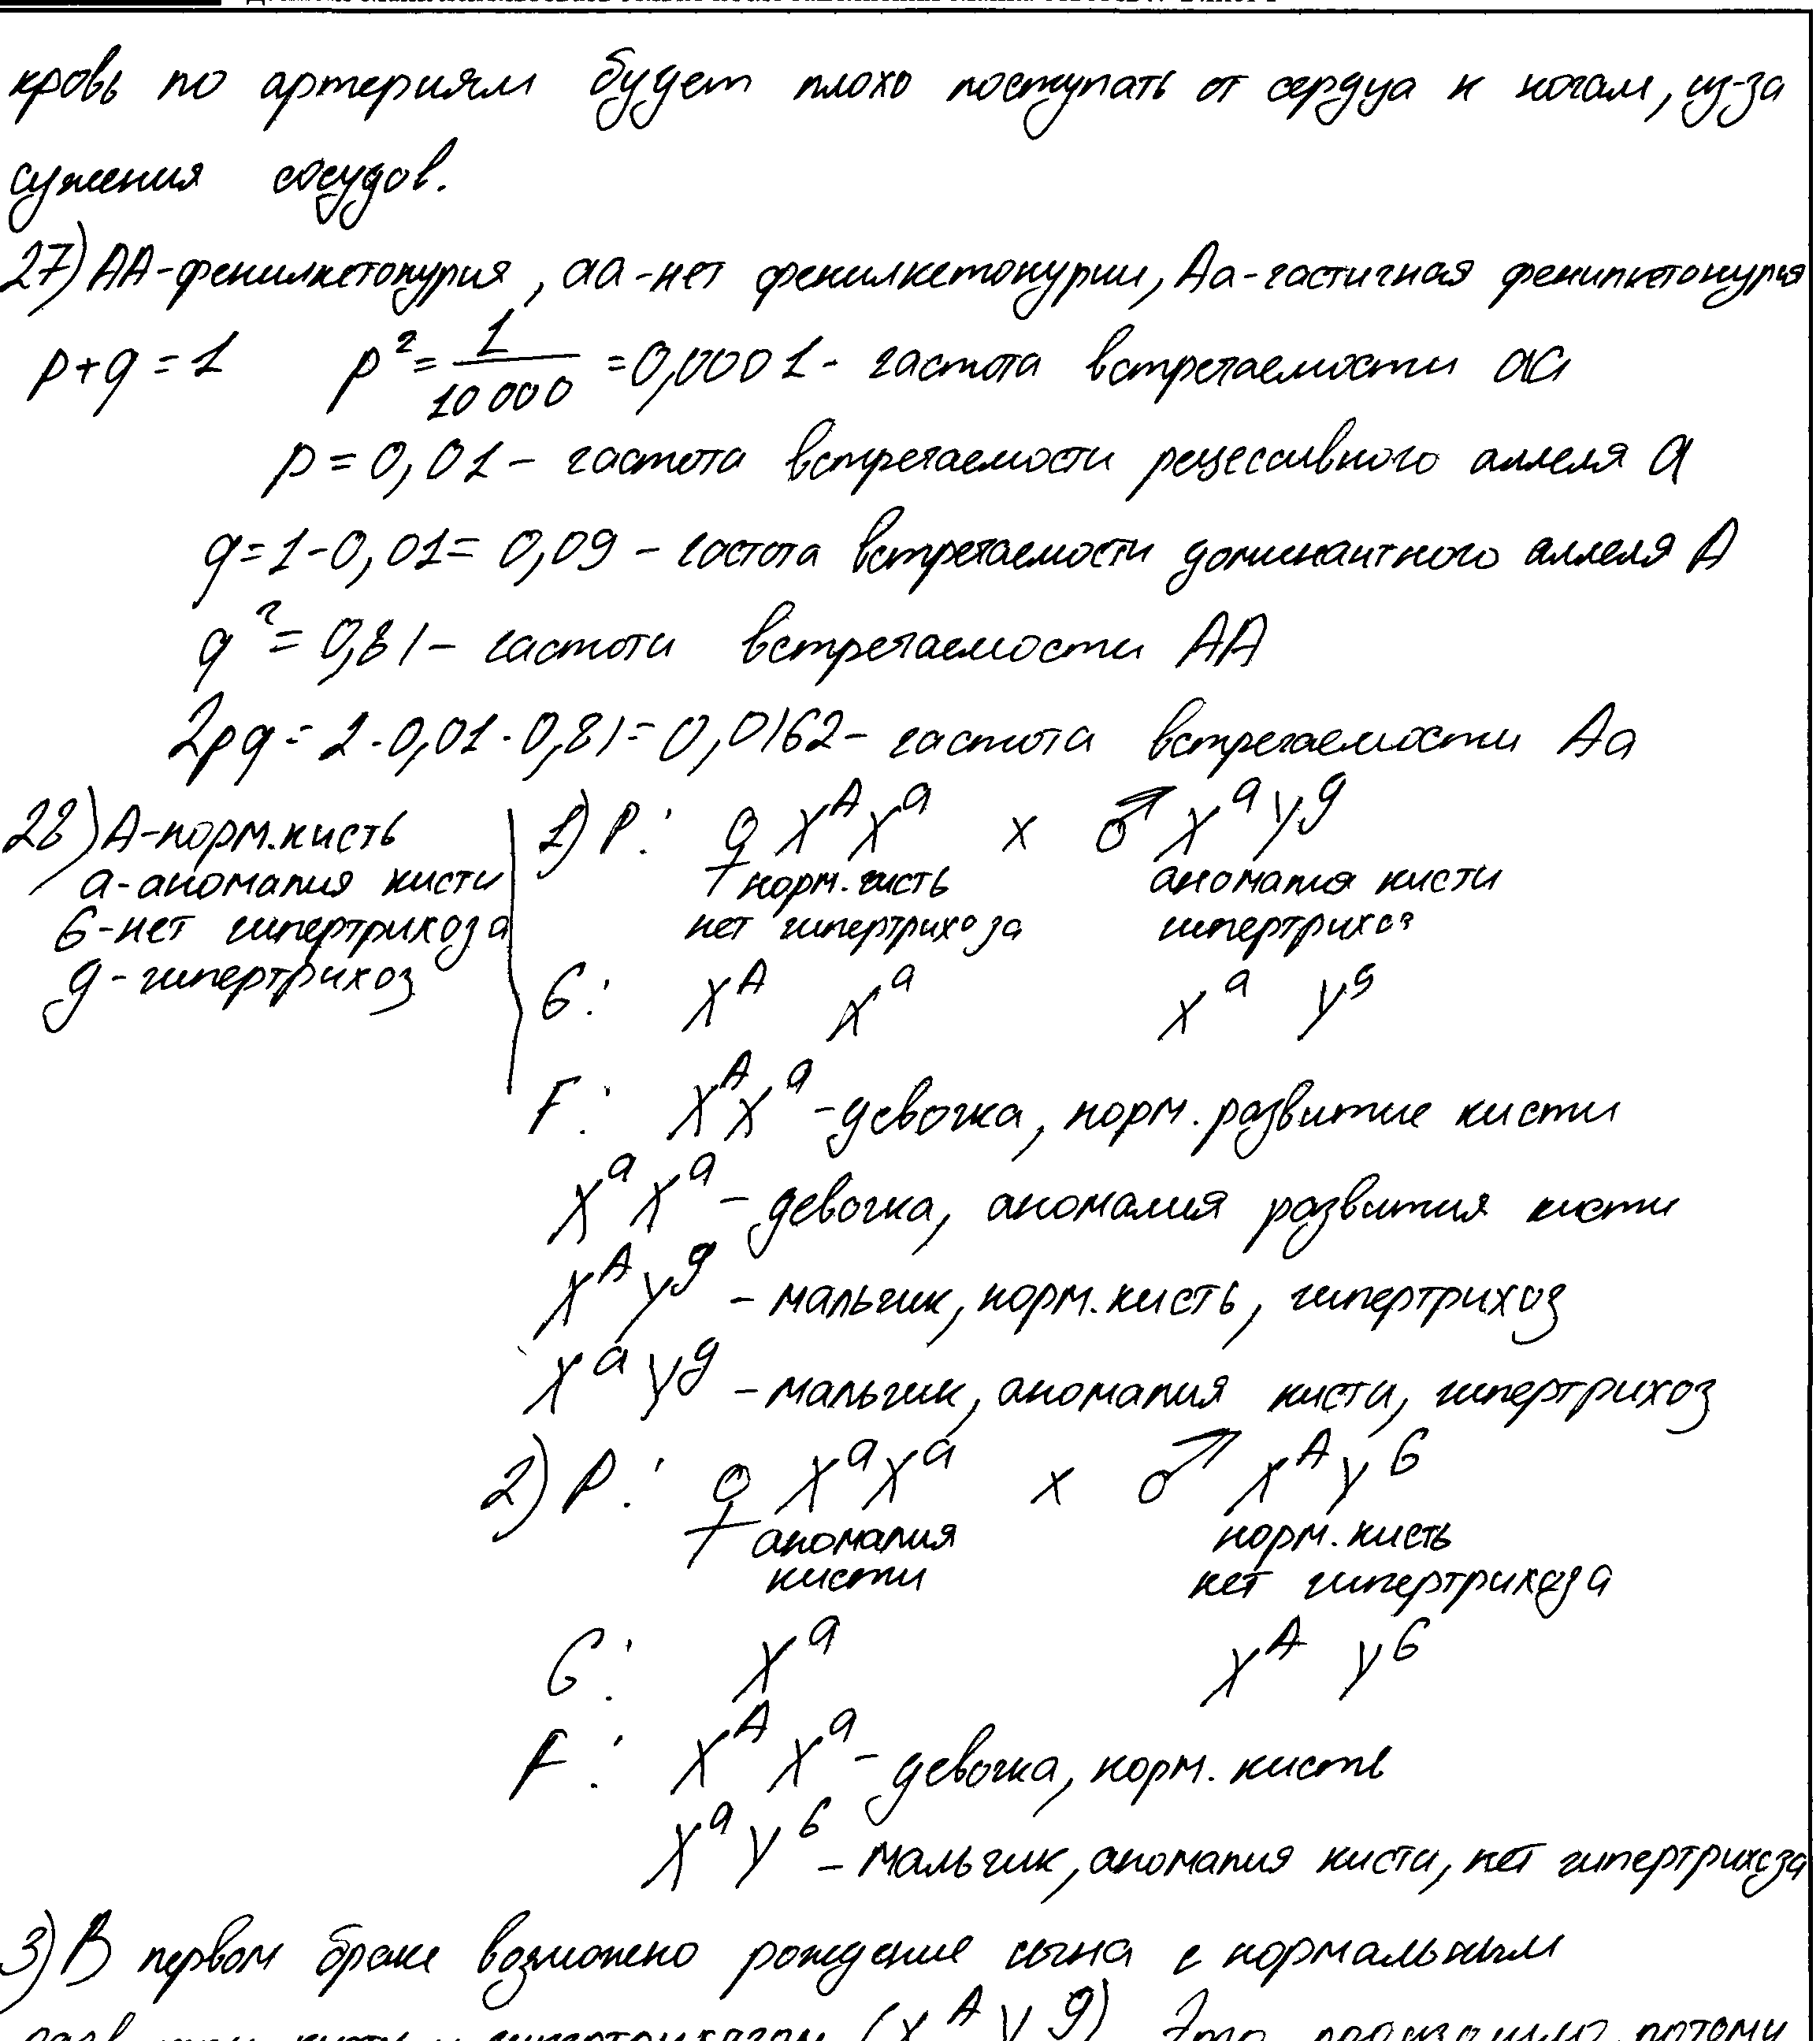 кровь по артериям будет плохо поступать от сердца к ногам, из-за
сужения сосудов.
27) АА-фенилкетонурия, аа-нет фенилкетонурии, Аа-частичная фенилкетонурия
p+q=1 p²= 1/10 000 =0,0001- частота встречаемости аа
p=0,01 - частота встречаемости рецессивного аллеля а
q=1-0,01= 0,09 - частота встречаемости доминантного аллеля А
q²= 0,81 - частота встречаемости АА
2pq= 2·0,01·0,81= 0,0162- частота встречаемости Аа
28) А-норм.кисть 1) P: ♀ X^A X^a x ♂ X^a Y^g
а-аномалия кисти норм. кисть аномалия кисти
б-нет гипертрихоза нет гипертрихоза гипертрихоз
g-гипертрихоз
G: X^A X^a X^a Y^g
F: X^A X^a -девочка, норм. развитие кисти
X^a X^a - девочка, аномалия развития кисти
X^A Y^g - мальчик, норм.кисть, гипертрихоз
X^a Y^g - мальчик, аномалия кисти, гипертрихоз
2) P: ♀ X^a X^a x ♂ X^A Y^б
аномалия норм. кисть
кисти нет гипертрихоза
G: X^a X^A Y^б
F: X^A X^a - девочка, норм. кисть
X^a Y^б - мальчик, аномалия кисти, нет гипертрихоза
3) В первом браке возможно рождение сына с нормальным
(X^A Y^g) Это потому